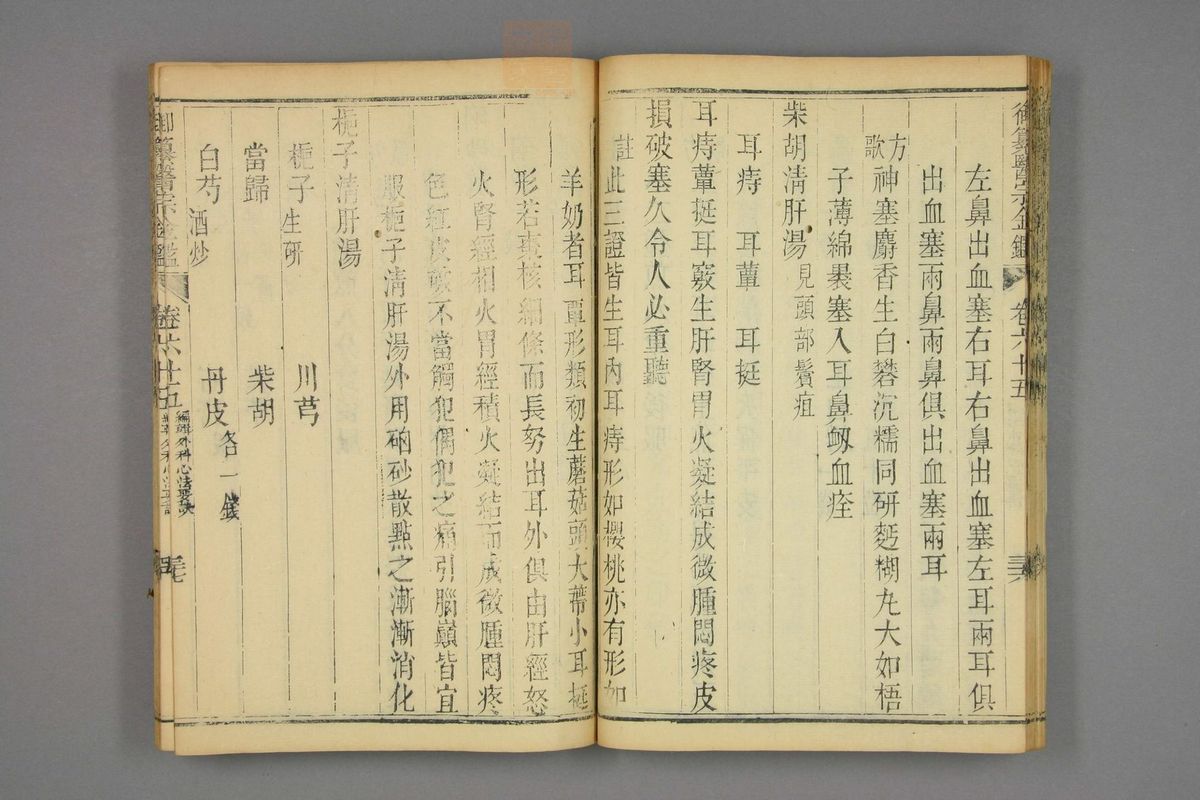 御纂醫宗金鑑
卷六十五
三六
左鼻出血塞右耳右鼻出血塞左耳兩耳俱
出血塞兩鼻兩鼻俱出血塞兩耳
方歌
神塞麝香生白礬沉糯同研麪糊丸大如梧
子薄綿裹塞入耳鼻衂血痊
柴胡淸肝湯 見頭部鬢疽
耳痔 耳蕈 耳挺
耳痔蕈挺耳竅生肝腎胃火凝結成微腫悶疼皮
損破塞久令人必重聽
註
此三證皆生耳內耳痔形如櫻桃亦有形如
羊奶者耳蕈形類初生蘑菇頭大蒂小耳挺
形若棗核細條而長努出耳外俱由肝經怒
火腎經相火胃經積火凝結而成微腫悶疼
色紅皮破不當觸犯偶犯之痛引腦巔皆宜
服梔子淸肝湯外用硇砂散點之漸漸消化
梔子淸肝湯
梔子生研 川芎
當歸 柴胡
白芍酒炒 丹皮各一錢
御纂醫宗金鑑
卷六十五
編輯外科心法要訣
三七